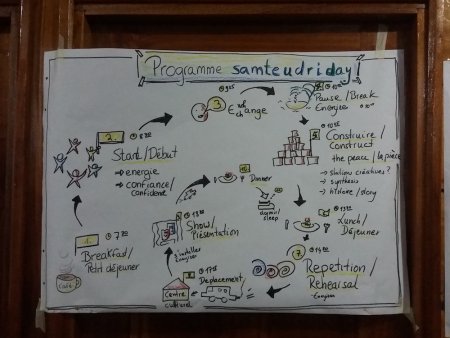 Programme samteudriday
1.
7 30
Breakfast/
Petit déjeuner
café
2.
8 30
Start/Début
→ energie
→ confiance/
confidence
3
9 05
Exchange
Pause/Break
Energize
5
10 30
Construire/
Construct
the peace/la pièce
→ stations créatives?
→ synthesis
→ histoire/story
6
13 00
Lunch/
Déjeuner
7
14 00
Repetition/
Rehearsal
17 00
Deplacement
Centre
culturel
18 00
Show/
Présentation
s'installer
10
Dinner
dormir/
sleep